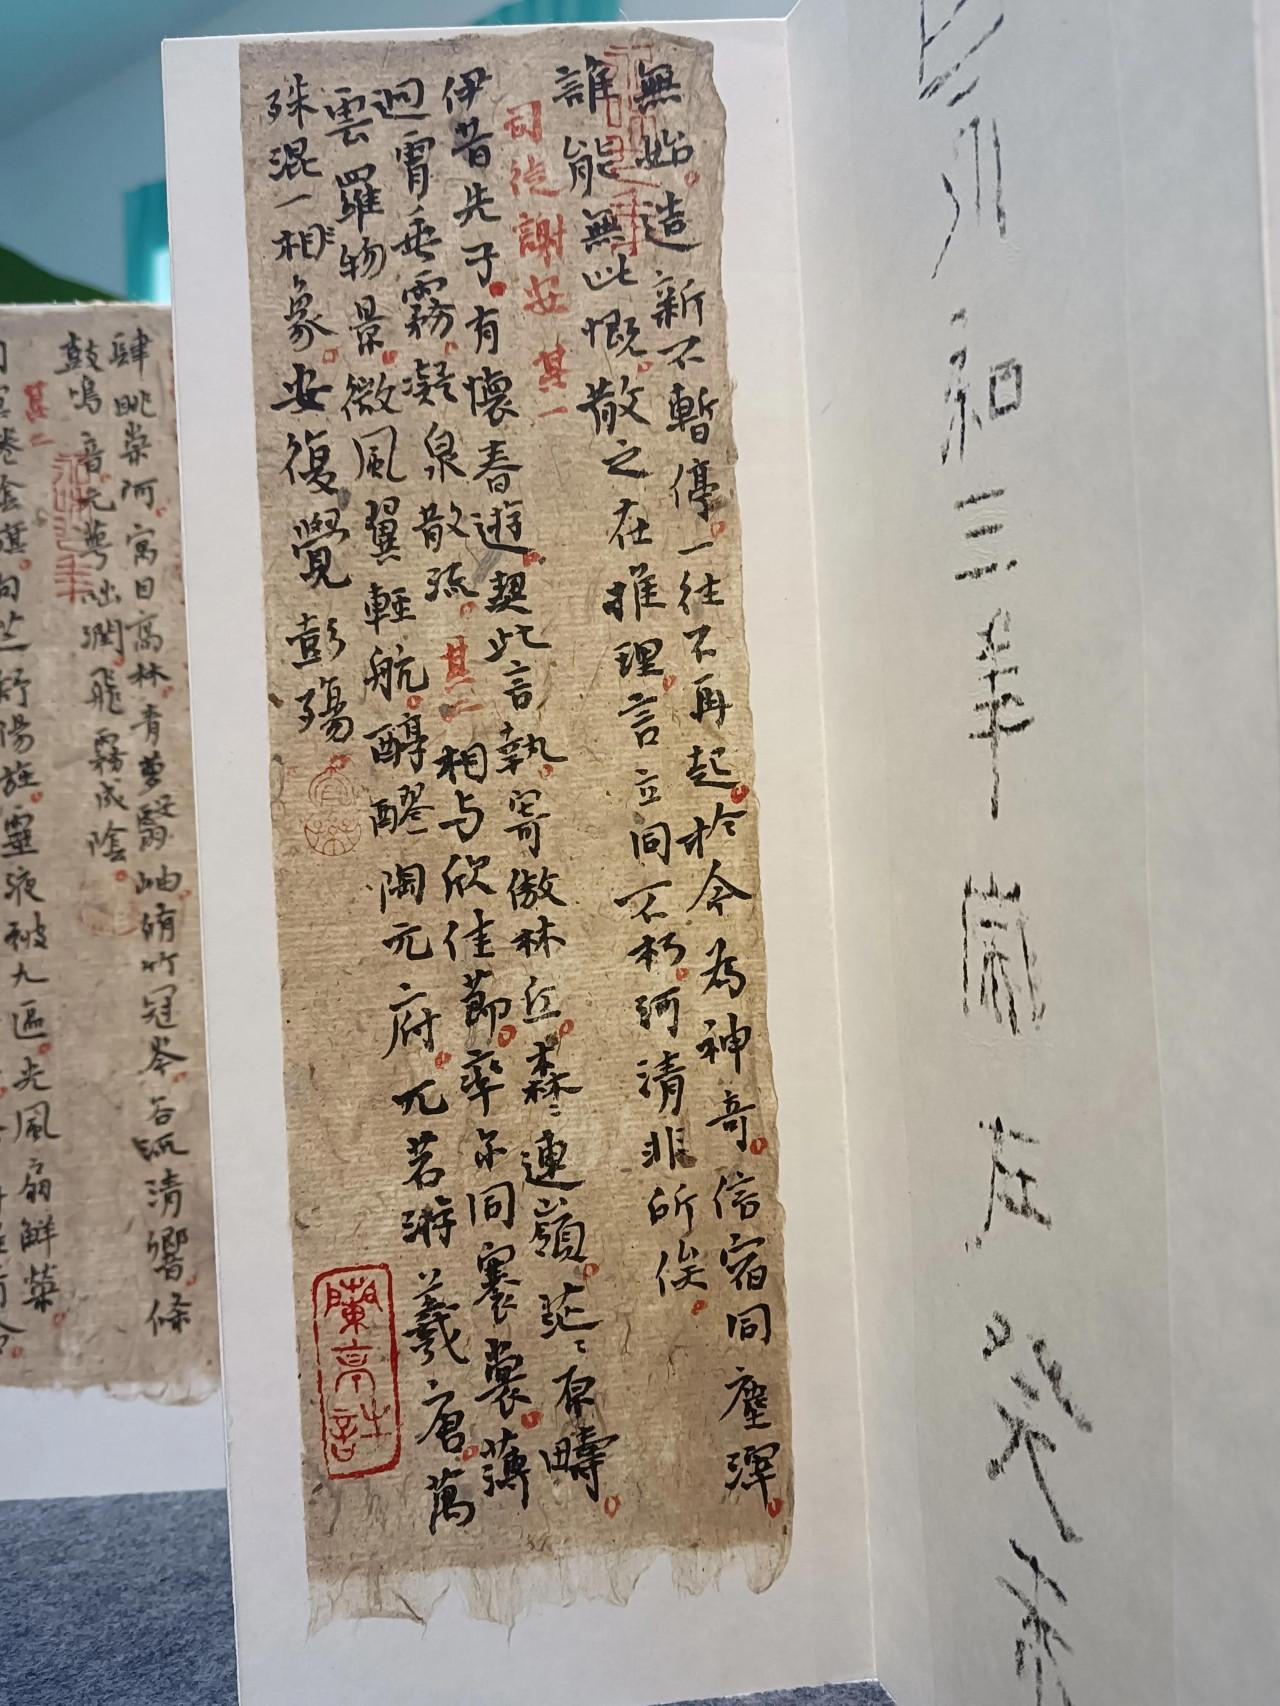 和三年
無始。造新不暫停。一往不再起。於今為神奇。信宿同塵滓。
誰能無此慨。散之在推理。言立同不朽。河清非所俟。
司徒謝安 其一
伊昔先子。有懷春遊。契此言執。寄傲林丘。森〻連嶺。茫〻原疇。
迥霄垂霧。凝泉散流。其二 相与欣佳節。率尔同褰裳。薄
雲羅物景。微風翼輕航。醇醪陶元府。兀若游羲唐。萬
殊混一相象。安復覺彭殤。
蘭亭詩
肆眺崇阿。寓目高林。青蘿翳岫。脩竹冠岑。谷流清響。條
鼓鳴音。元萼吐潤。飛霧成陰。
其二
司冥卷陰旗。句芒舒陽旌。靈液被九區。光風扇鮮榮。